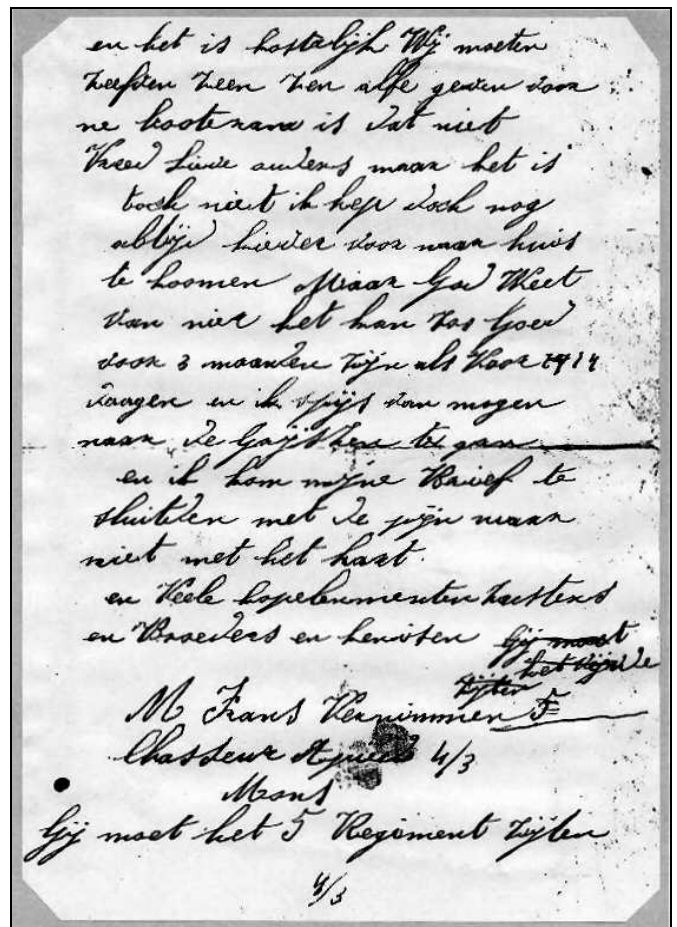 en het is kostelijk Wij moeten
zelfden zeen zen alfe geven voor
ne booteram is dat niet
Vreed Lieve ouders maar het is
toch niet ik hep doch nog
altijd liever voor naar huis
te koomen Maar God Weet
van nier het kan zoo Goed
voor 3 maanden zijn als Voor 14
daagen en ik spijs van mogen
naar de te gaan
en ik kom mijne Brief te
sluitden met de pijn maar
niet met het hart
en Veele kopelenmenten zusters
en Broeders en kenisen Gij moet
het vijvde
zijten
M Frans Vernimmen 5
Chasseur Apied 4/3
Mons
Gij moet het 5 Regiment zijten
4/3